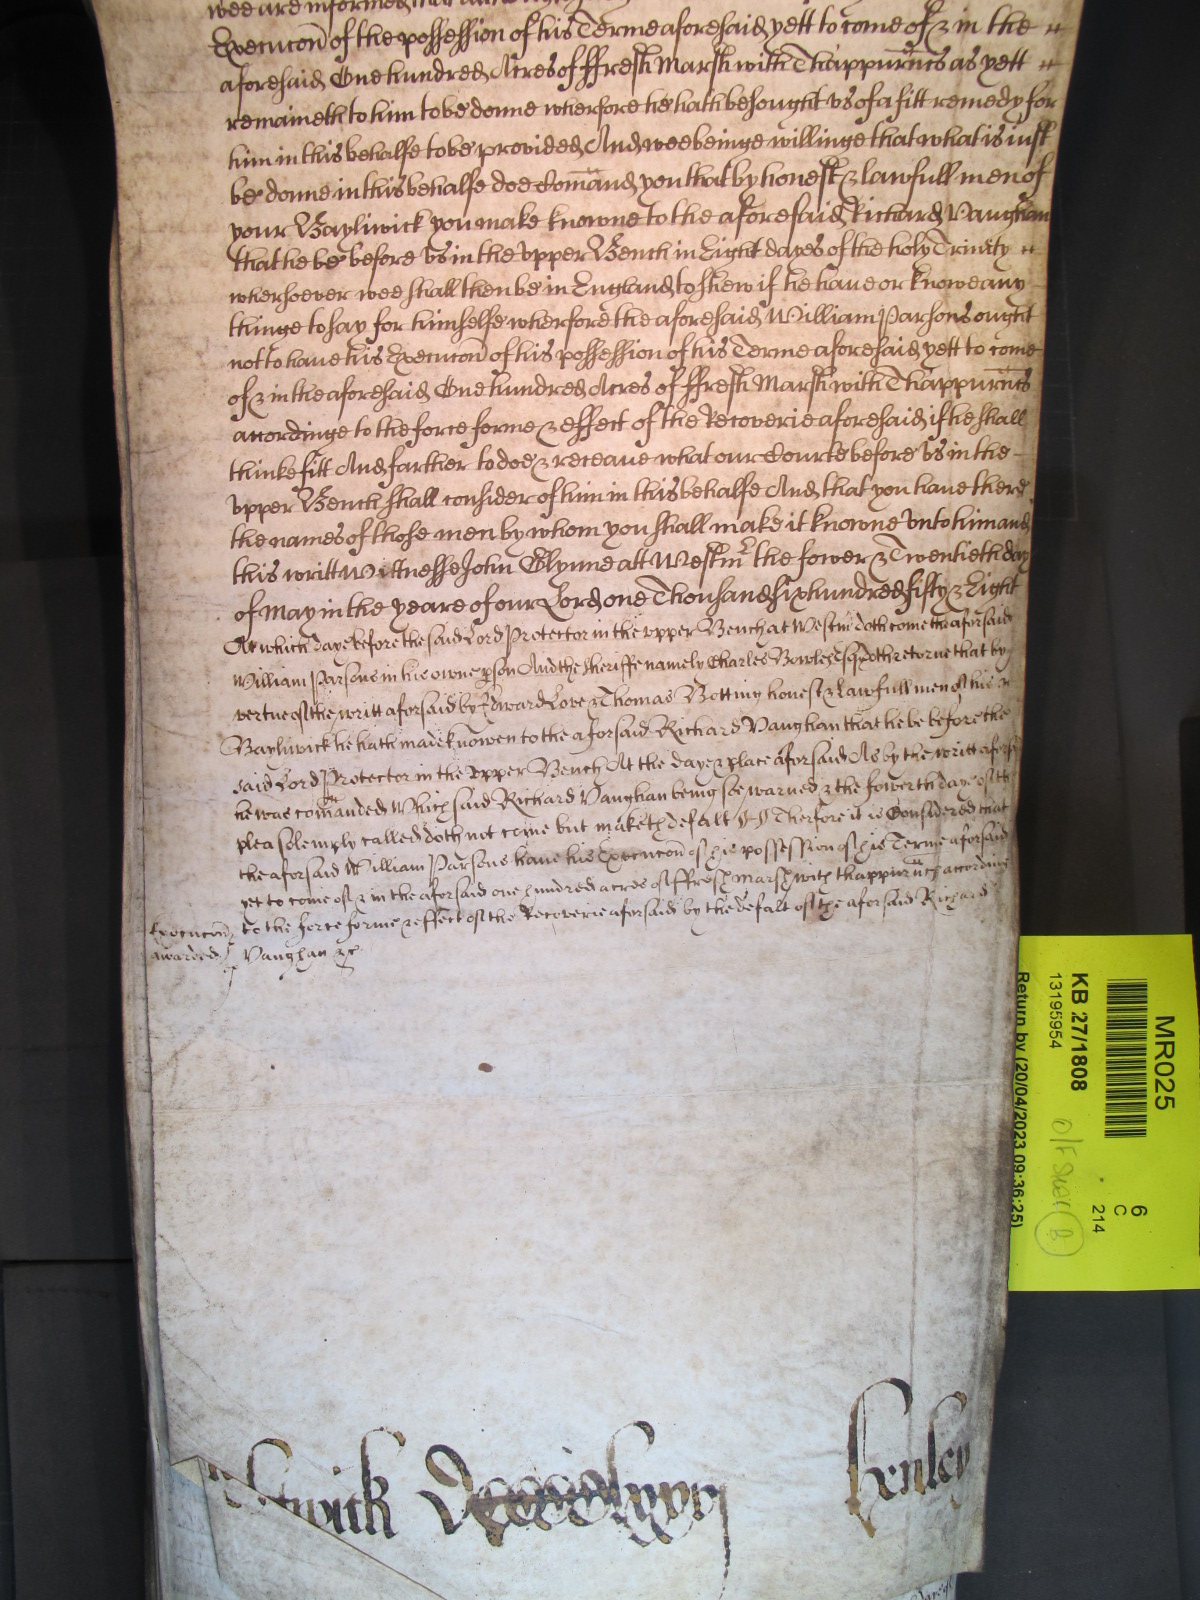 wee are informed
Execucon of the possession of his Terme aforesaid yett to come of & in the
aforesaid One hundred Acres of ffresh Marsh with Thappurtncs as yett
remaineth to him to be donne wherfore he hath besought vs of a fitt remedy for
him in this behalfe to be provided And wee beinge willinge that what is iust
be donne in this behalfe doe Comand you that by honest & lawfull men of
your Bayliwick you make knowne to the aforesaid Richard Vaughan
that he be before vs in the vpper Bench in Eight dayes of the holy Trinity
whersoever wee shall then be in England to shew if he haue or knowe any
thinge to say for himselfe wherfore the aforesaid William Parsons ought
not to haue his Execucon of his possession of his Terme aforesaid yett to come
of & in the aforesaid One hundred Acres of ffresh Marsh with Thappurtncs
accordinge to the force forme & effect of the Recoverie aforesaid if he shall
thinke fitt And farther to doe & receaue what our Courte before vs in the
vpper Bench shall consider of him in this behalfe And that you haue there
the names of those men by whom you shall make it knowne vnto him and
this writt Wittnesse John Glynne att Westmr the fower & Twentieth day
of May in the yeare of our Lord one Thousand six hundred fifty & Eight
At which daye before the said Lord Protector in the vpper Bench at Westm doth come the aforsaid
William Parsons in his owne pson And the Sheriffe namely Charles Bowles Esq doth retorne that by
vertue of the writt aforsaid by Edward Love & Thomas Botting honest & lawfull men of his
Bayliwick he hath made knowen to the aforsaid Richard Vaughan that he be before the
said Lord Protector in the vpper Bench At the daye & place aforsaid As by the writt aforsd
he was comanded Which said Richard Vaughan being soe warned & the fowerth daye of the
plea solemply called doth not come but maketh defalt Therfore it is Considered that
the aforsaid William Parsons haue his Execucon of his possession of his Terme aforsaid
yet to come of & in the aforsaid one hundred acres of ffresh marsh with thappurtncs according
to the force forme & effect of the Recoverie aforsaid by the defalt of the aforsaid Richard
Vaughan &c
Execucon
awarded
wick
henley
MR025
KB 27/1808
13195954
6
C
214
Return by (20/04/2023 09:36:25)